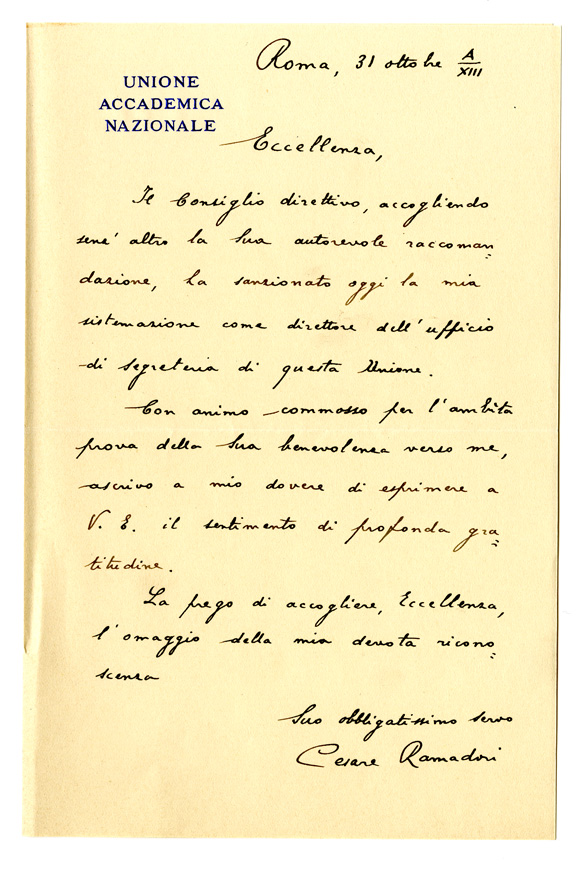 Roma, 31 ottobre A/XIII
UNIONE
ACCADEMICA
NAZIONALE
Eccellenza,
Il Consiglio direttivo, accogliendo
senz'altro la Sua autorevole raccoman=
dazione, ha sanzionato oggi la mia
sistemazione come direttore dell'ufficio
di segreteria di questa Unione.
Con animo commosso per l'ambita
prova della Sua benevolenza verso me,
ascrivo a mio dovere di esprimere a
V. E. il sentimento di profonda gra=
titudine.
La prego di accogliere, Eccellenza,
l'omaggio della mia devota ricono=
scenza
Suo obbligatissimo servo
Cesare Ramadori